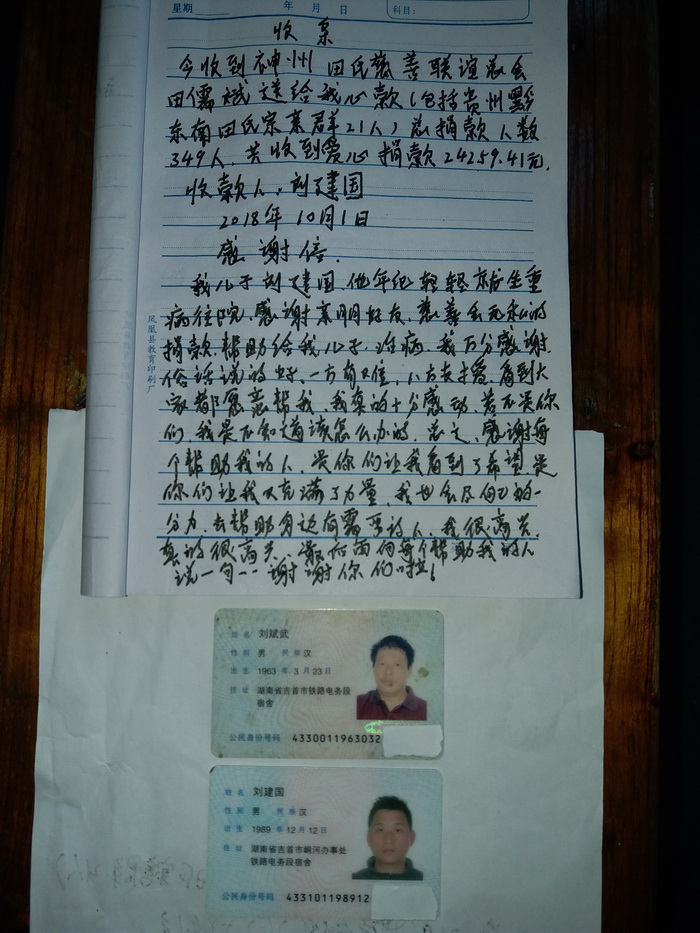 星期 年 月 日 科目:
收条
今收到神州田氏慈善联谊总会
田儒斌送给我心款(包括贵州黔
东南田氏宗亲群21人)总捐款人数
349人.共收到爱心捐款24259.41元.
收款人.刘建国
2018年10月1日
感谢信.
我儿子刘建国.他年纪轻轻就生重
病住院.感谢亲朋好友.慈善会无私的
捐款.帮助给我儿子治病.我万分感谢.
俗话说的好.一方有难,八方支援.看到大
家都愿意帮我.我真的十分感动.若不是你
们.我是不知道该怎么办的.总之.感谢每
个帮助我的人.是你们让我看到了希望是
你们让我又充满了力量.我也会尽自己的一
分力.去帮助身边有需要的人.我很高兴.
真的很高兴.最后面向每个帮助我的人
说一句--谢谢你们啦!
凤凰县教育印刷厂
姓名 刘斌武
性别 男 民族 汉
出生 1963 年 3 月 23 日
住址 湖南省吉首市铁路电务段
宿舍
公民身份号码 4330011963032
姓名 刘建国
性别 男 民族 汉
出生 1989 年 12 月 12 日
住址 湖南省吉首市峒河办事处
铁路电务段宿舍
公民身份号码 433101198912